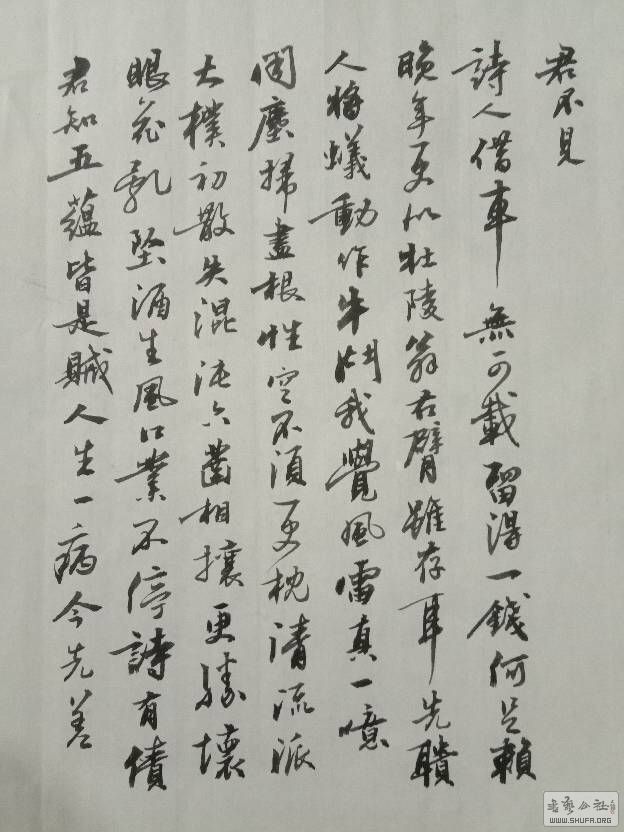 君不見
詩人借車無可載留得一錢何足賴
晚年更似杜陵翁右臂雖存耳先聵
人將蟻動作牛鬥我覺風雷真一噫
聞塵掃盡根性空不須更枕清流派
大樸初散失混沌六鑿相攘更勝壞
眼花亂墜酒生風口業不停詩有債
君知五蘊皆是賊人生一病今先差
WWW.SHUFA.ORG